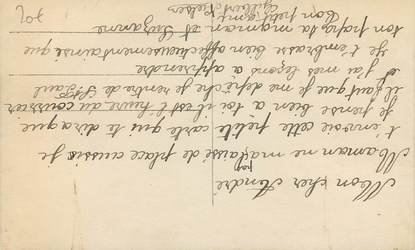 Mon cher André
Maman ne ma laisse pas de place aussi je
t'envoie cette petite carte qui te dira que
je pense bien a toi il est l'heure du courrier
il faut que je me depêche je rentre de St
et j'ai mes leçons a apprendre
Je t'embrasse bien affectueusement ainsi que
ton papa ta maman et Suzanne
Ton petit ami
Gilbert